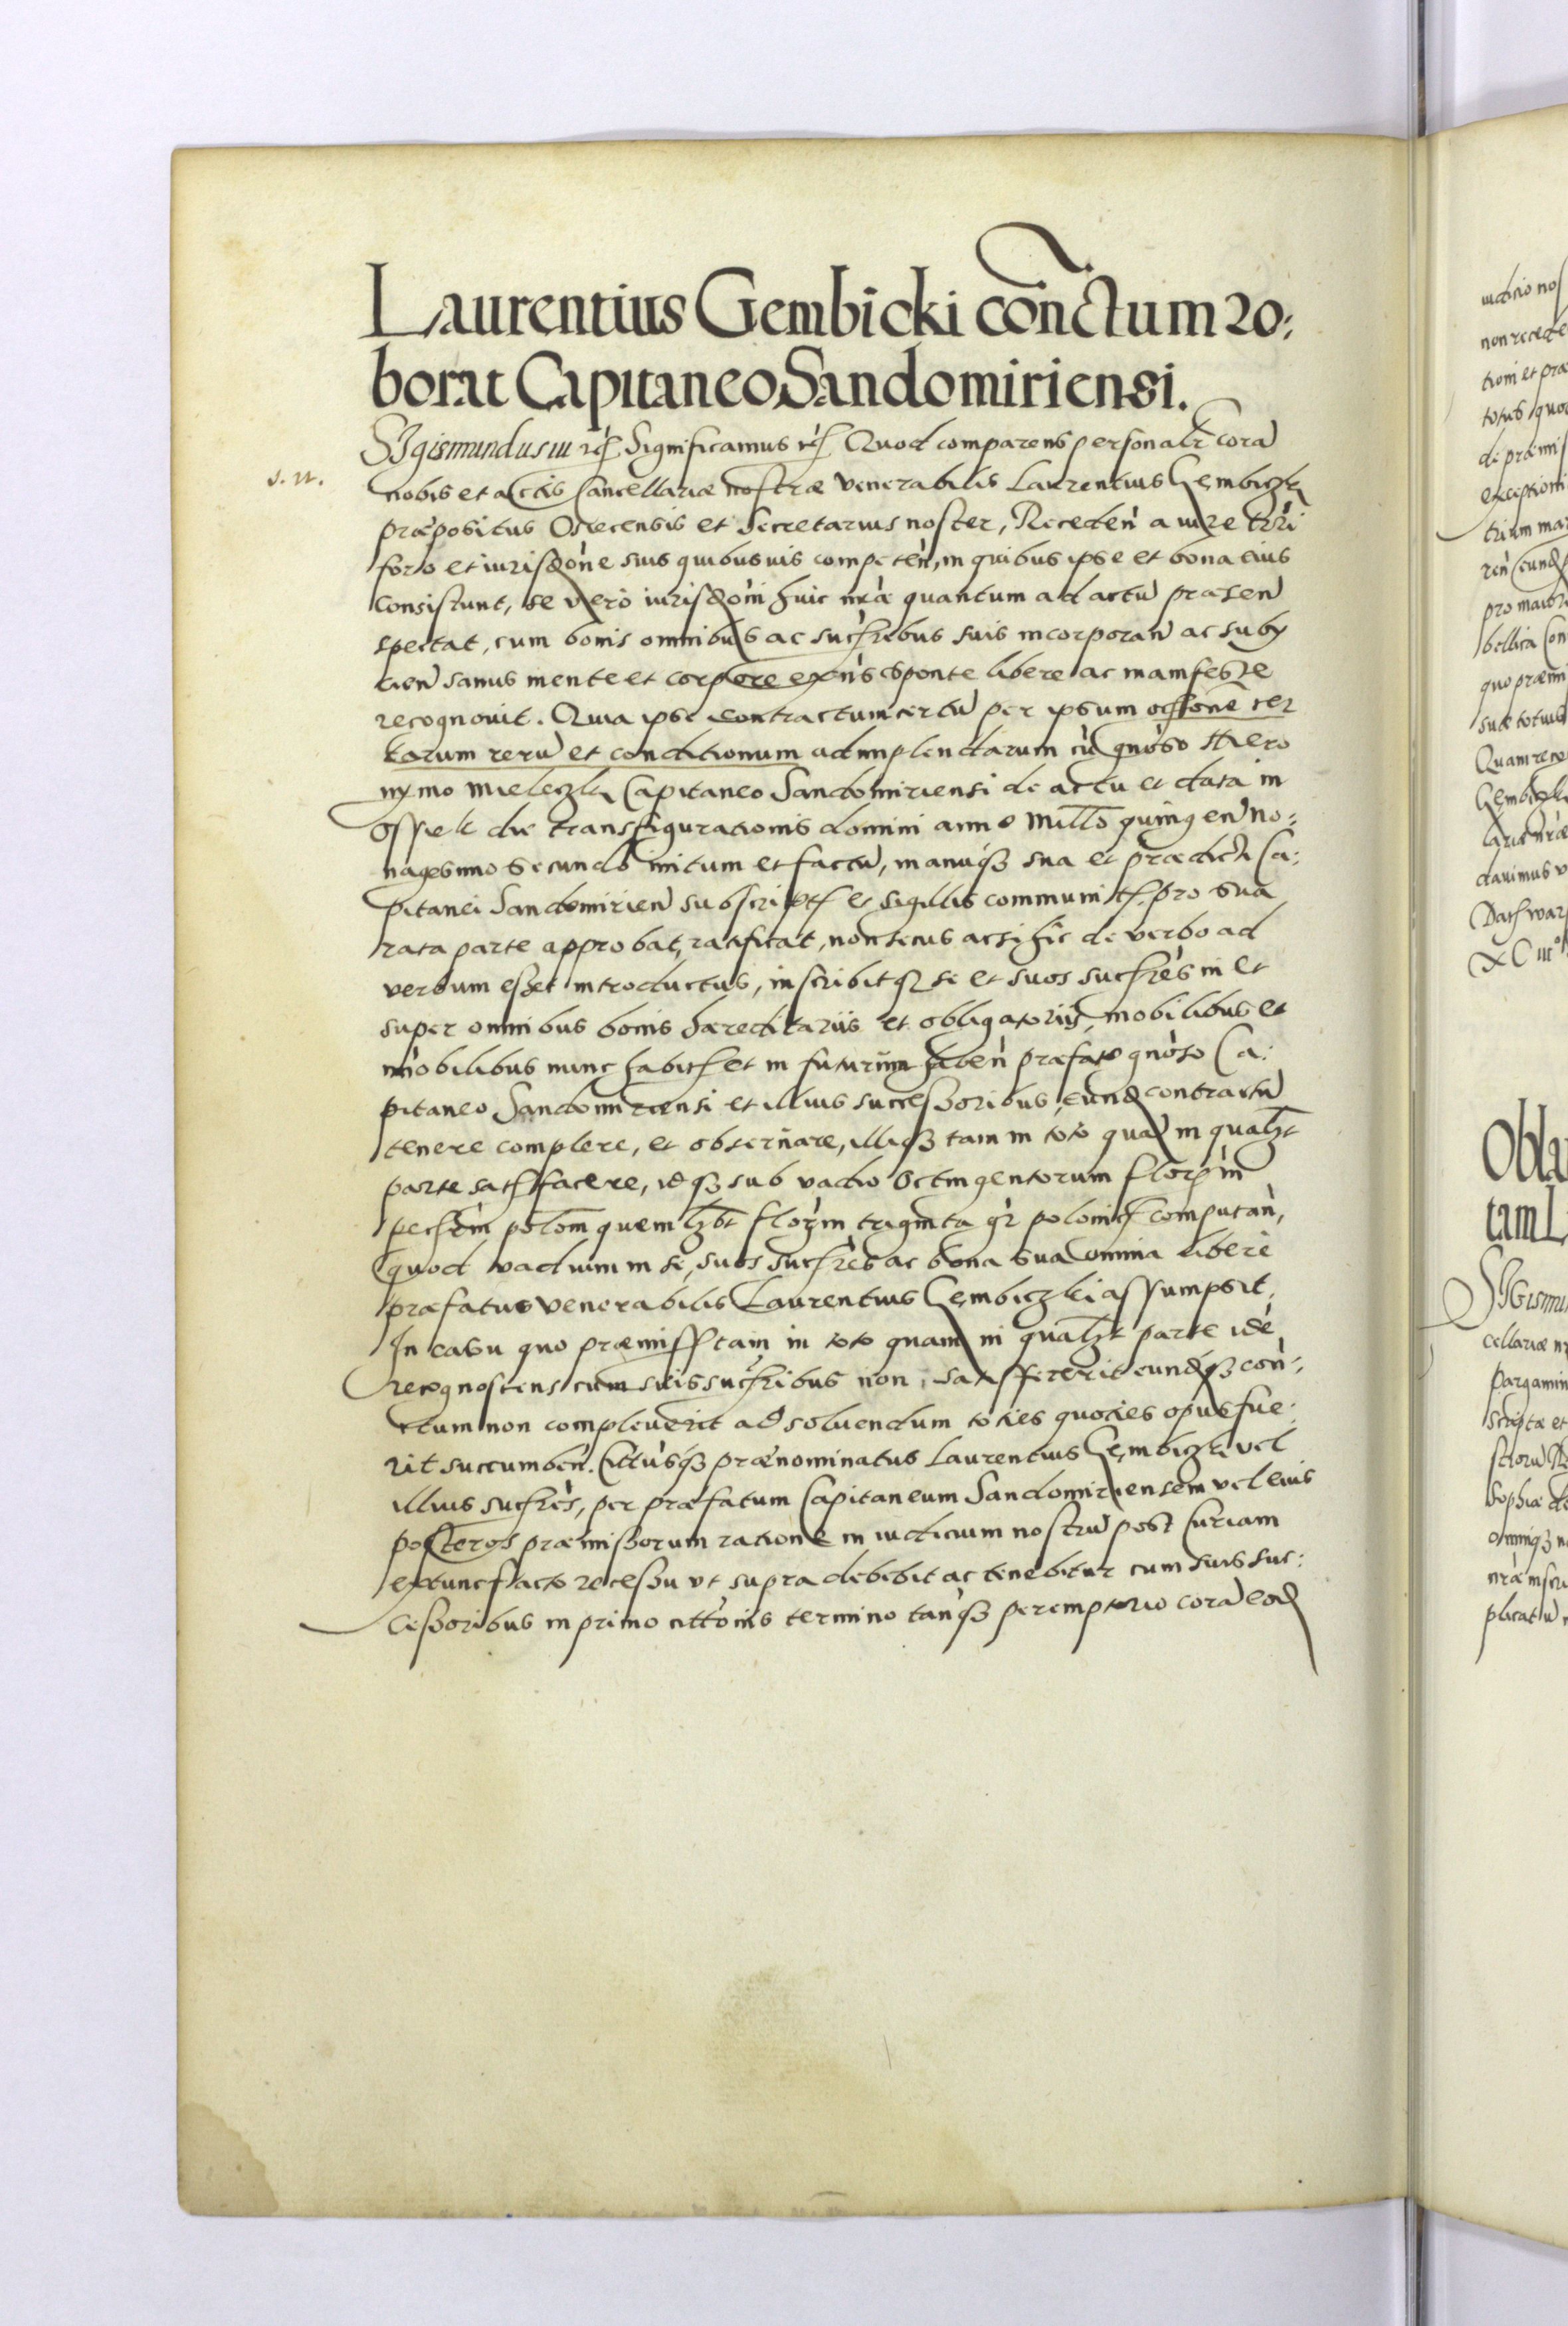 Laurentius Gembicki contractum ro:
borat Capitaneo Sandomiriensi.
Sigismundus III etc. Significamus etc. Quod comparens personalr cora
s. n.
nobis et actis Cancellariæ nostræ venerabilis Laurentius Gembiczki
præpositus et Secretarius noster, Receden a iure trri
foro et iurisdone suis quibusuis competen, in quibus ipse et bona eius
consistunt, se vero iurisdoni huic nræ quantum ad actu præsen
spectat, cum bonis omnibus ac succribus suis incorporan ac subij
cien sanus mente et corpore exns sponte libere ac manifeste
recognouit. Quia ipse contractum certu per ipsum cer
tarum reru et conditionum adimplendarum cu gnoso Hiero
nymo Mieleczki Capitaneo Sandomiriensi de actu et data in
Ossiek die transfigurationis domini anno millo quingen no:
nagesimo secundo initum et factu, manuq sua et prædicti Ca:
pitanei Sandomirien subscript et sigillis communit pro sua
rata parte approbat, ratificat, non secus acsi hic de verbo ad
verbum esset introductus, inscribitq se et suos succres in et
super omnibus bonis hæreditariis et obligatorijs, mobilibus et
imobilibus nunc habit et in futurum haben præfato gnoso Ca:
pitaneo Sandomiriensi et illius successoribus, eund contractu
tenere complere, et obseruare, illiq tam in toto qua in qualzt
parte satisfacere, idq sub vadio Octingentorum flor in
pecen polom quemlzbt flor in triginta gr polonic computan,
quod vadium in se, suos succres ac bona sua omnia libere
præfatus venerabilis Laurentius Gembiczki assumpsit,
In casu quo præmiss tam in toto quam in qualzt parte ide
recognoscens cum suis succribus non satisfecerit eundq con:
ctum non compleuerit ad soluendum toties quoties opus fue:
rit succumben. Cittusq prænominatus Laurentius Gembiczki vel
illius succres, per præfatum Capitaneum Sandomiriensem vel eius
posteros præmissorum ratione in iudicium nostru post Curiam
extunc facto recessu vt supra debebit ac tenebitur cum suis suc:
cessoribus in primo cittonis termino tanq peremptorio cora eod